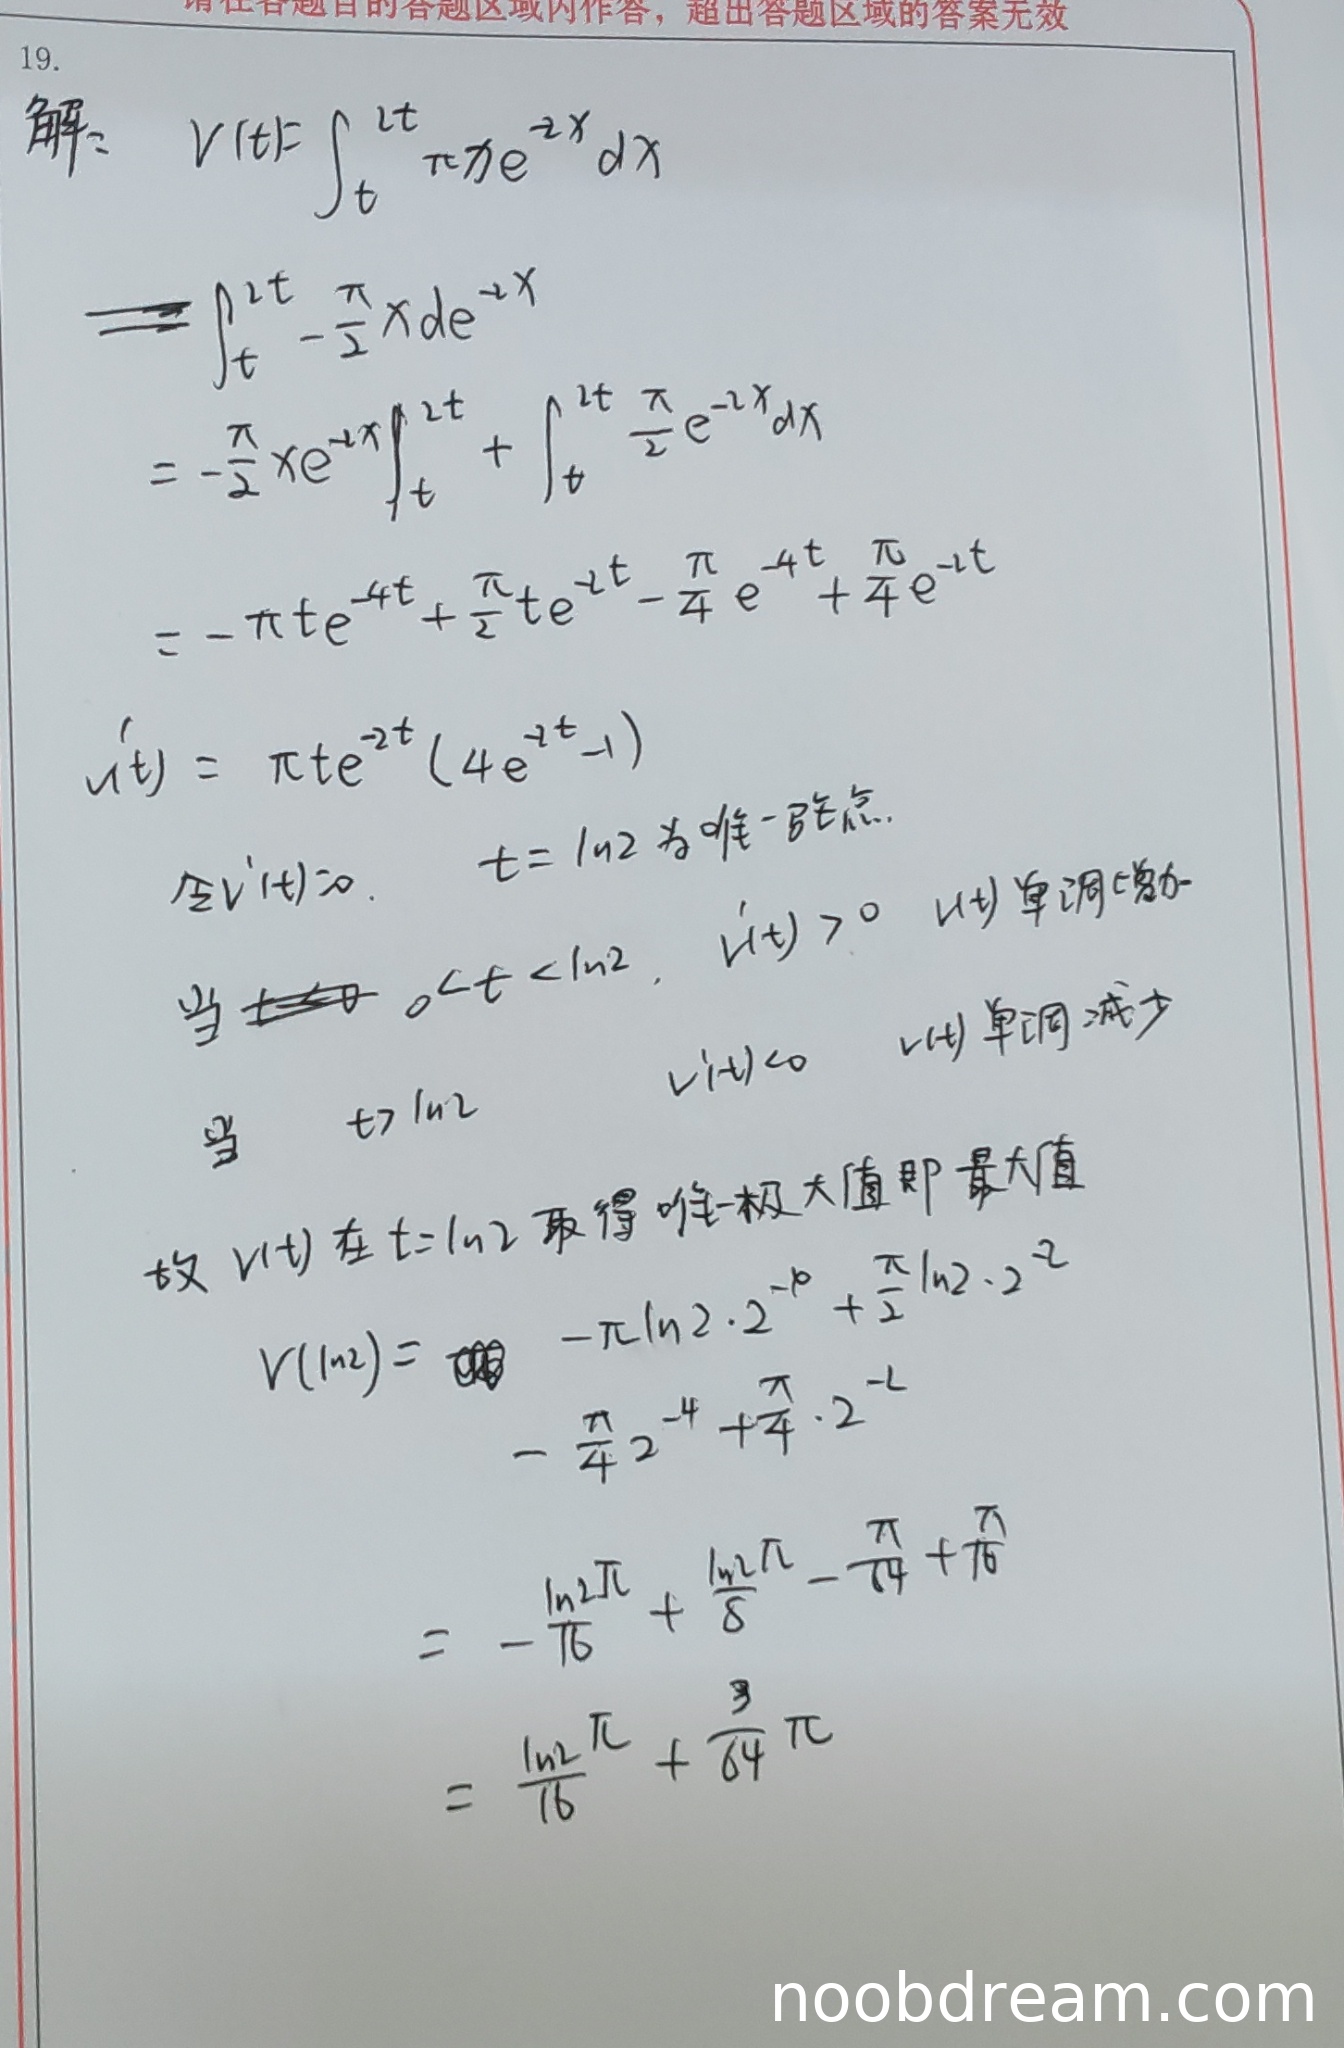 请在各题目的答题区域内作答，超出答题区域的答案无效
19.
解: V(t)=∫_t^{2t} πxe^{-2x}dx
= ∫_t^{2t} -π/2 xde^{-2x}
= -π/2 xe^{-2x}|_t^{2t} + ∫_t^{2t} π/2 e^{-2x}dx
= -πte^{-4t} + π/2 te^{-2t} - π/4 e^{-4t} + π/4 e^{-2t}
V'(t) = πte^{-2t}(4e^{-2t}-1)
令V'(t)=0. t=ln2为唯一驻点.
当 0<t<ln2, V'(t)>0 V(t)单调增加
当 t>ln2 V'(t)<0 V(t)单调减少
故V(t)在t=ln2取得唯一极大值即最大值
V(ln2)= -πln2·2^{-4} + π/2 ln2·2^{-2}
- π/4 2^{-4} + π/4·2^{-2}
= - ln2/16 π + ln2/8 π - π/64 + π/16
= ln2/16 π + 3/64 π
noobdream.com